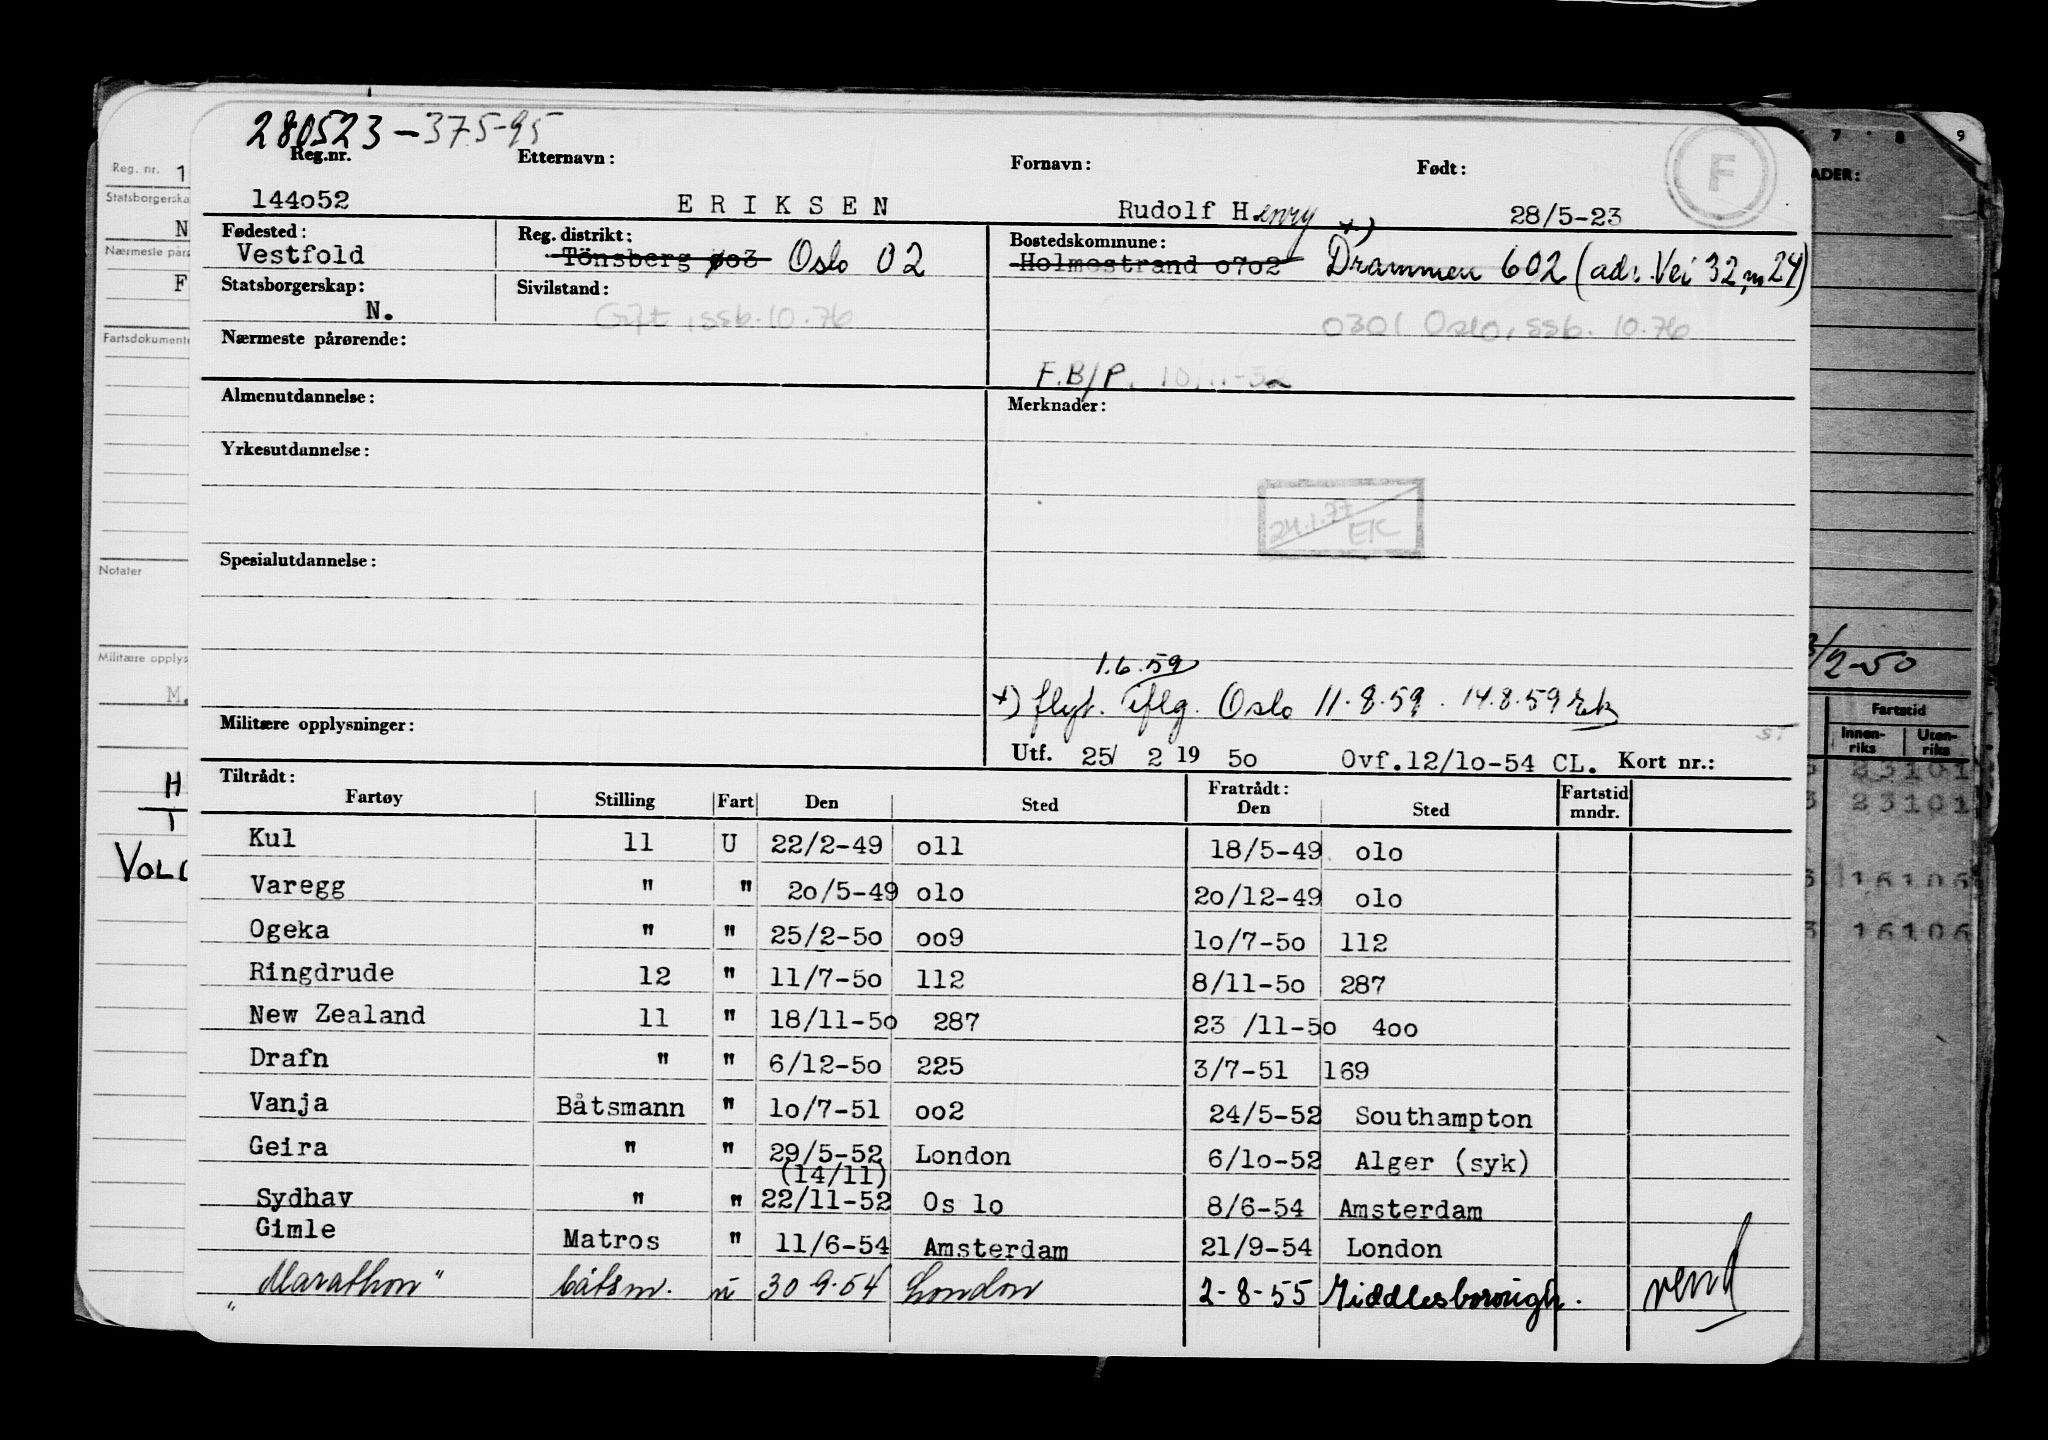 280523-375-95
Reg.nr. Etternavn: Fornavn: Født: F
144o52 ERIKSEN Rudolf Henry 28/5-23
Fødested: Reg. distrikt: Bostedskommune: +)
Vestfold Tönsberg øo3 Oslo 02 Holmestrand o7o2 Drammen 602 (adr. Vei 32, 24)
Statsborgerskap: Sivilstand:
N. Gift, ssb. 10.76 0301 Oslo, ssb. 10.76
Nærmeste pårørende:
F.B/P. 10/11-52
Almenutdannelse: Merknader:
Yrkesutdannelse:
24.1.77 EK
Spesialutdannelse:
1.6.59
+) flyt. iflg. Oslo 11.8.59. 14.8.59 Ek
Militære opplysninger:
Utf. 25/ 2 19 5o Ovf.12/1o-54 CL. Kort nr.:
Tiltrådt: Fratrådt:
Fartøy Stilling Fart Den Sted Den Sted Fartstid mndr.
Kul 11 U 22/2-49 o11 18/5-49 o1o
Varegg " " 2o/5-49 o1o 2o/12-49 o1o
Ogeka " " 25/2-5o oo9 1o/7-5o 112
Ringdrude 12 " 11/7-5o 112 8/11-5o 287
New Zealand 11 " 18/11-5o 287 23 /11-5o 4oo
Drafn " " 6/12-5o 225 3/7-51 169
Vanja Båtsmann " 1o/7-51 oo2 24/5-52 Southampton
Geira " " 29/5-52 London 6/1o-52 Alger (syk)
(14/11)
Sydhav " " 22/11-52 Os lo 8/6-54 Amsterdam
Gimle Matros " 11/6-54 Amsterdam 21/9-54 London
"Marathon" båtsm. u 30.9.54 London 2-8-55 Middlesborough. vend
Reg. nr. 1
Statsborgerska
N
Nærmeste påre
F
Fartsdokumente
Notater
Militære opplys
M.
H
T
VOLL
7 8 9
ADER:
/2-50
Fartstid
Innen-riks Uten-riks
23101
23101
16106
16106